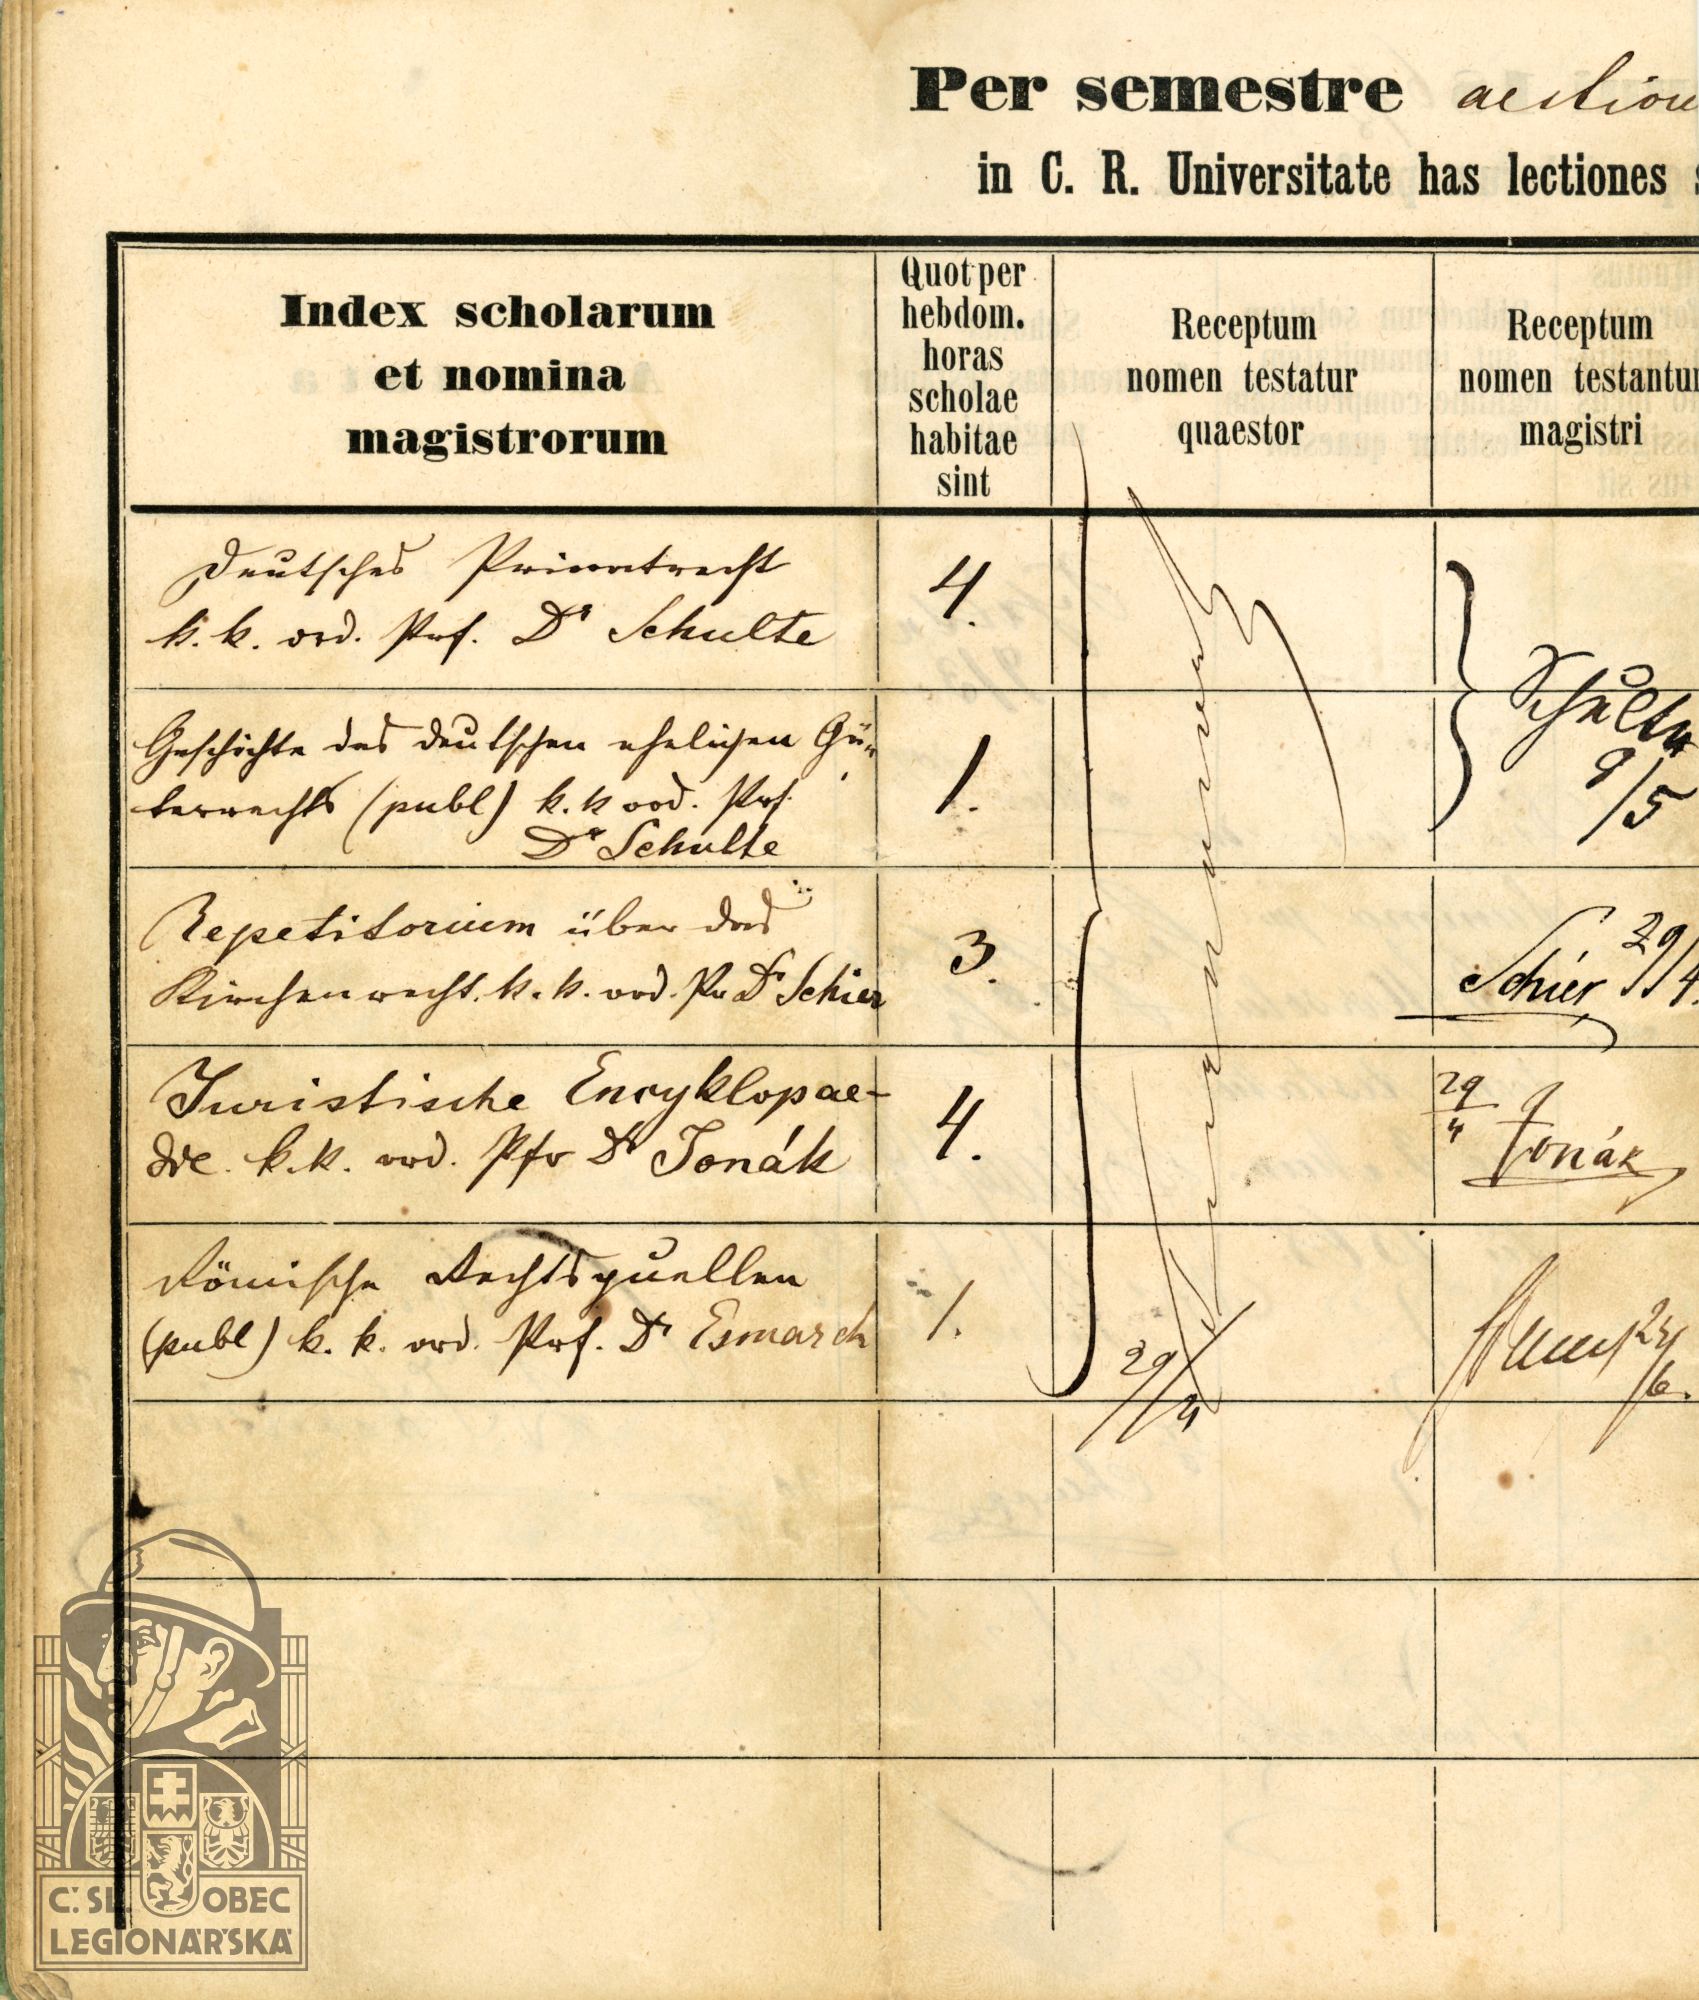 Per semestre aestivo
in C. R. Universitate has lectiones
Index scholarum
et nomina
magistrorum
Quot per
hebdom.
horas
scholae
habitae
sint
Receptum
nomen testatur
quaestor
Receptum
nomen testantur
magistri
Deutsches Privatrecht
k. k. ord. Prof. Dr Schulte
4.
Schulte
9/5
Geschichte des deutschen ehelichen Gü-
terrechts (publ) k. k ord. Prf.
Dr Schulte
1.
Repetitorium über das
Kirchenrecht. k. k. ord. Pr Dr Schier
3.
Schier 29/4.
Juristische Encyklopae-
die k.k. ord. Pfr Dr Jonák
4.
29/4 Jonák
Römische Rechtsquellen
(publ) k. k. ord. Prf. Dr Esmarch
1.
29/4
Č. SL. OBEC
LEGIONÁŘSKÁ